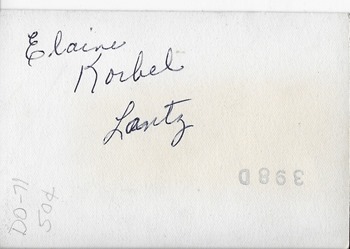 Elaine
Korbel
Lantz
398D
DO-71
50¢